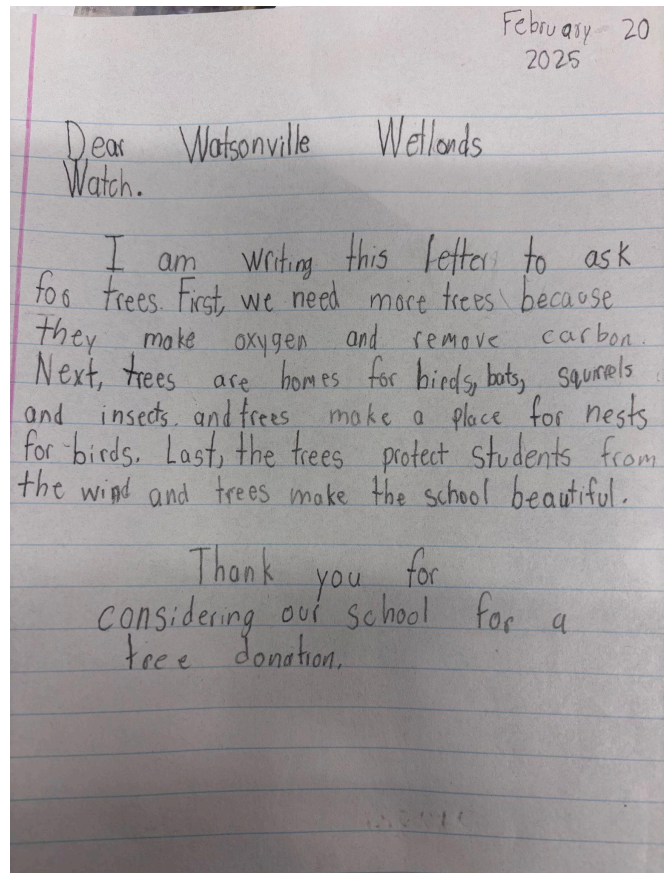 February 20
2025
Dear Watsonville Wetlands
Watch.
I am writing this letter to ask
for trees. First, we need more trees because
they make oxygen and remove carbon.
Next, trees are homes for birds, bats, squirrels
and insects. and trees make a place for nests
for birds. Last, the trees protect students from
the wind and trees make the school beautiful.
Thank you for
considering our school for a
tree donation.